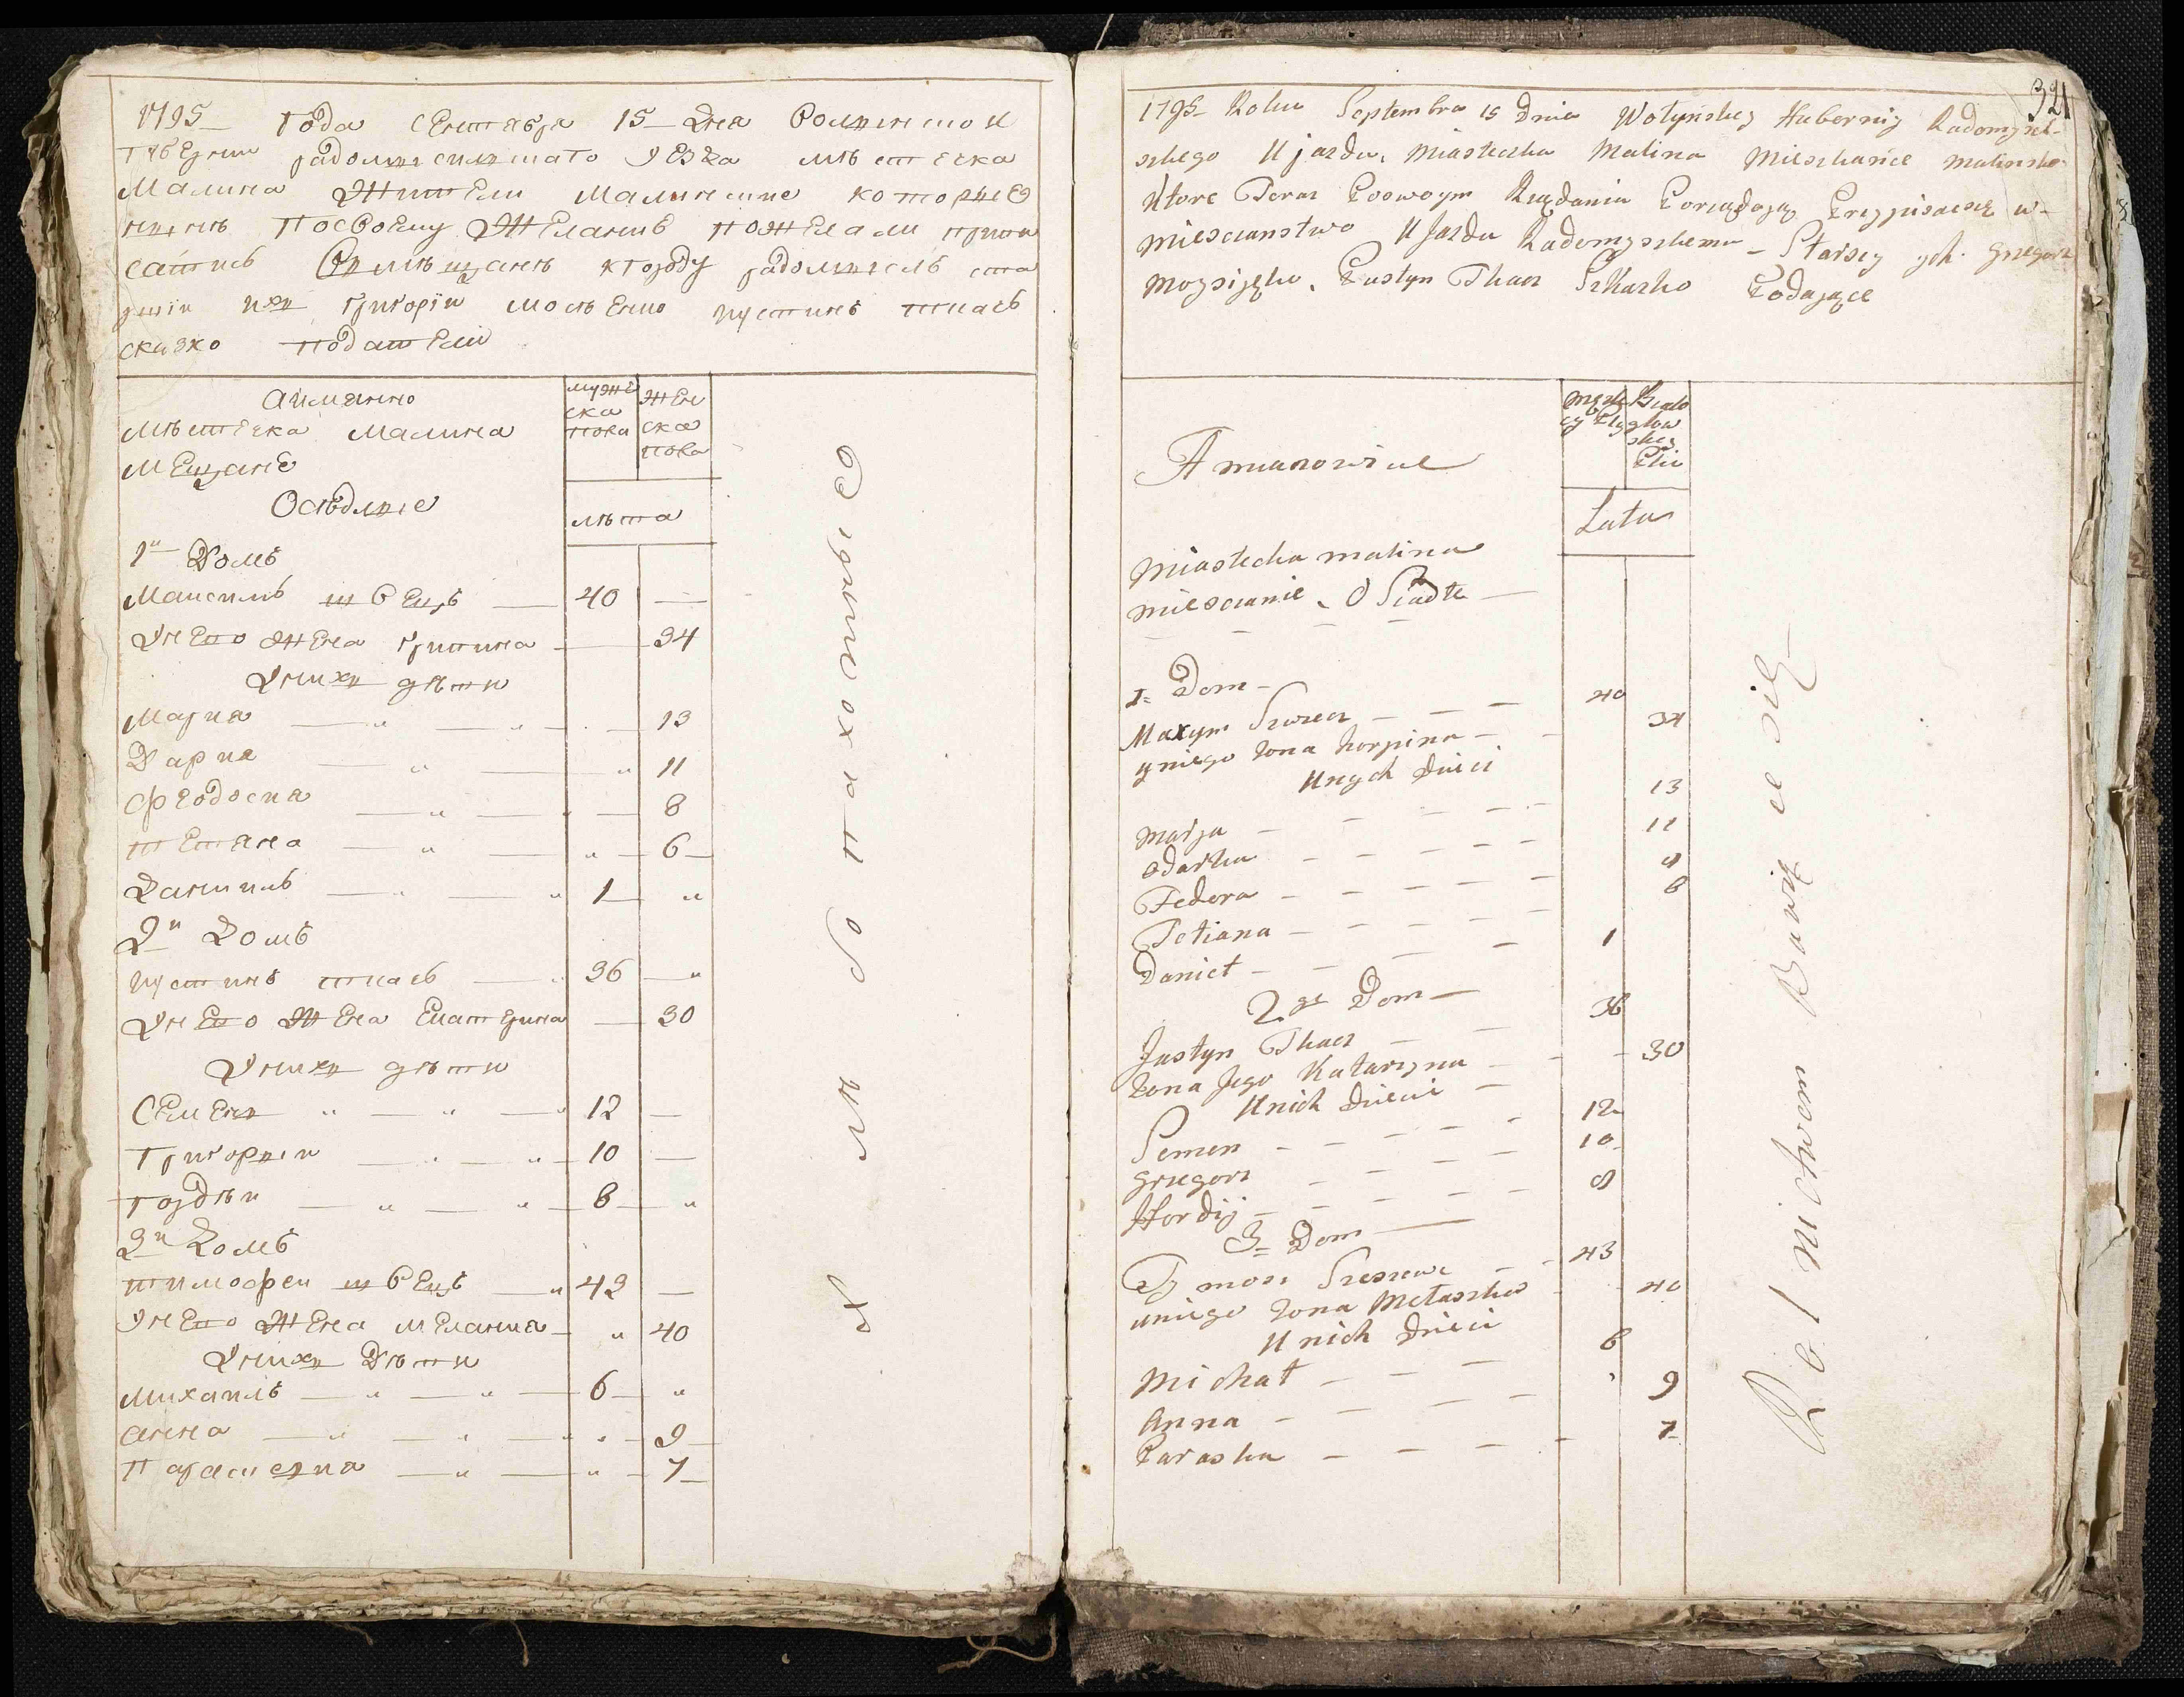 1795 года сентября 15 дня волынской
губернии радомисилскаго уезда мѣстечка
Малина жители малинские которые
нынѣ посвоему желанию пожелали припи
сатись вмѣщанѣ кгороду радомыслѣ ста
ршїи ихъ григорїи мосѣенко иустинъ ткачъ
сказко податели
аимянно
мѣстечка малина
мещане
Осѣдлые
мужѣ
ска
пола
жен
ска
пола
лѣта
1й домъ
Максимъ швецъ 40 —
Унего жена григина — 34
Унихъ дѣти
Мариа 13
Дариа 11
Феодосиа 8
тетяна 6
Данилъ 1
2й домъ
иустинъ ткачъ 36
Унего жена Екатерина 30
Унихъ дѣти
Семенъ 12 —
Григорыи 10 —
Гордѣи 8
3й домъ
тимофеи швецъ 43 —
Унего жена меланиа 40
Унихъ дѣти
михаилъ 6
анна 9
Параскевиа 7
хлѣбопахотные
321
1795 Roku Septembra 15 Dnia Wołyńskiej Hubernij Radomysl-
szkego Ujazdu, Miasteczka Malina Mieszkańce malinskie
Ktore Teraz Poswoym Rządaniu Porządają Przypisacsię w-
miescianstwo Ujazdu Radomyszkemu – Starszy ych Grzegorz
Moysijęko, Justyn Tkacz Szkazko Podające
A mianowicie
Męzkiey Płci
Białogłowskiey Płci
Lata
Miasteczka malina
miescianie, Osiadłe
1. Dom
Maxym Szwecz 40
yniego żona horpina 34
Unych Dzieci
Marja 13
Odarka 11
Fedora 8
Tetiana 6
Danieł 1
2go Dom
Justyn Tkacz 36
żona Jego Katarzyna 30
Unich Dzieci
Semen 12
Grzegorz 10
Hordij 8
3. Dom
Tymosz Szewc 43
uniego żona Małaszka 40
Unich Dzieci
Michał 6
Anna 9
Paraska 7
Rolnictwem Bawięcesię